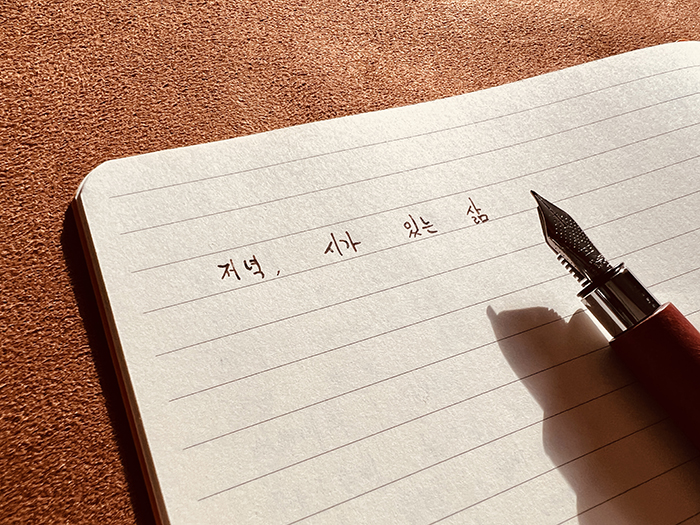 저녁, 시가 있는 삶